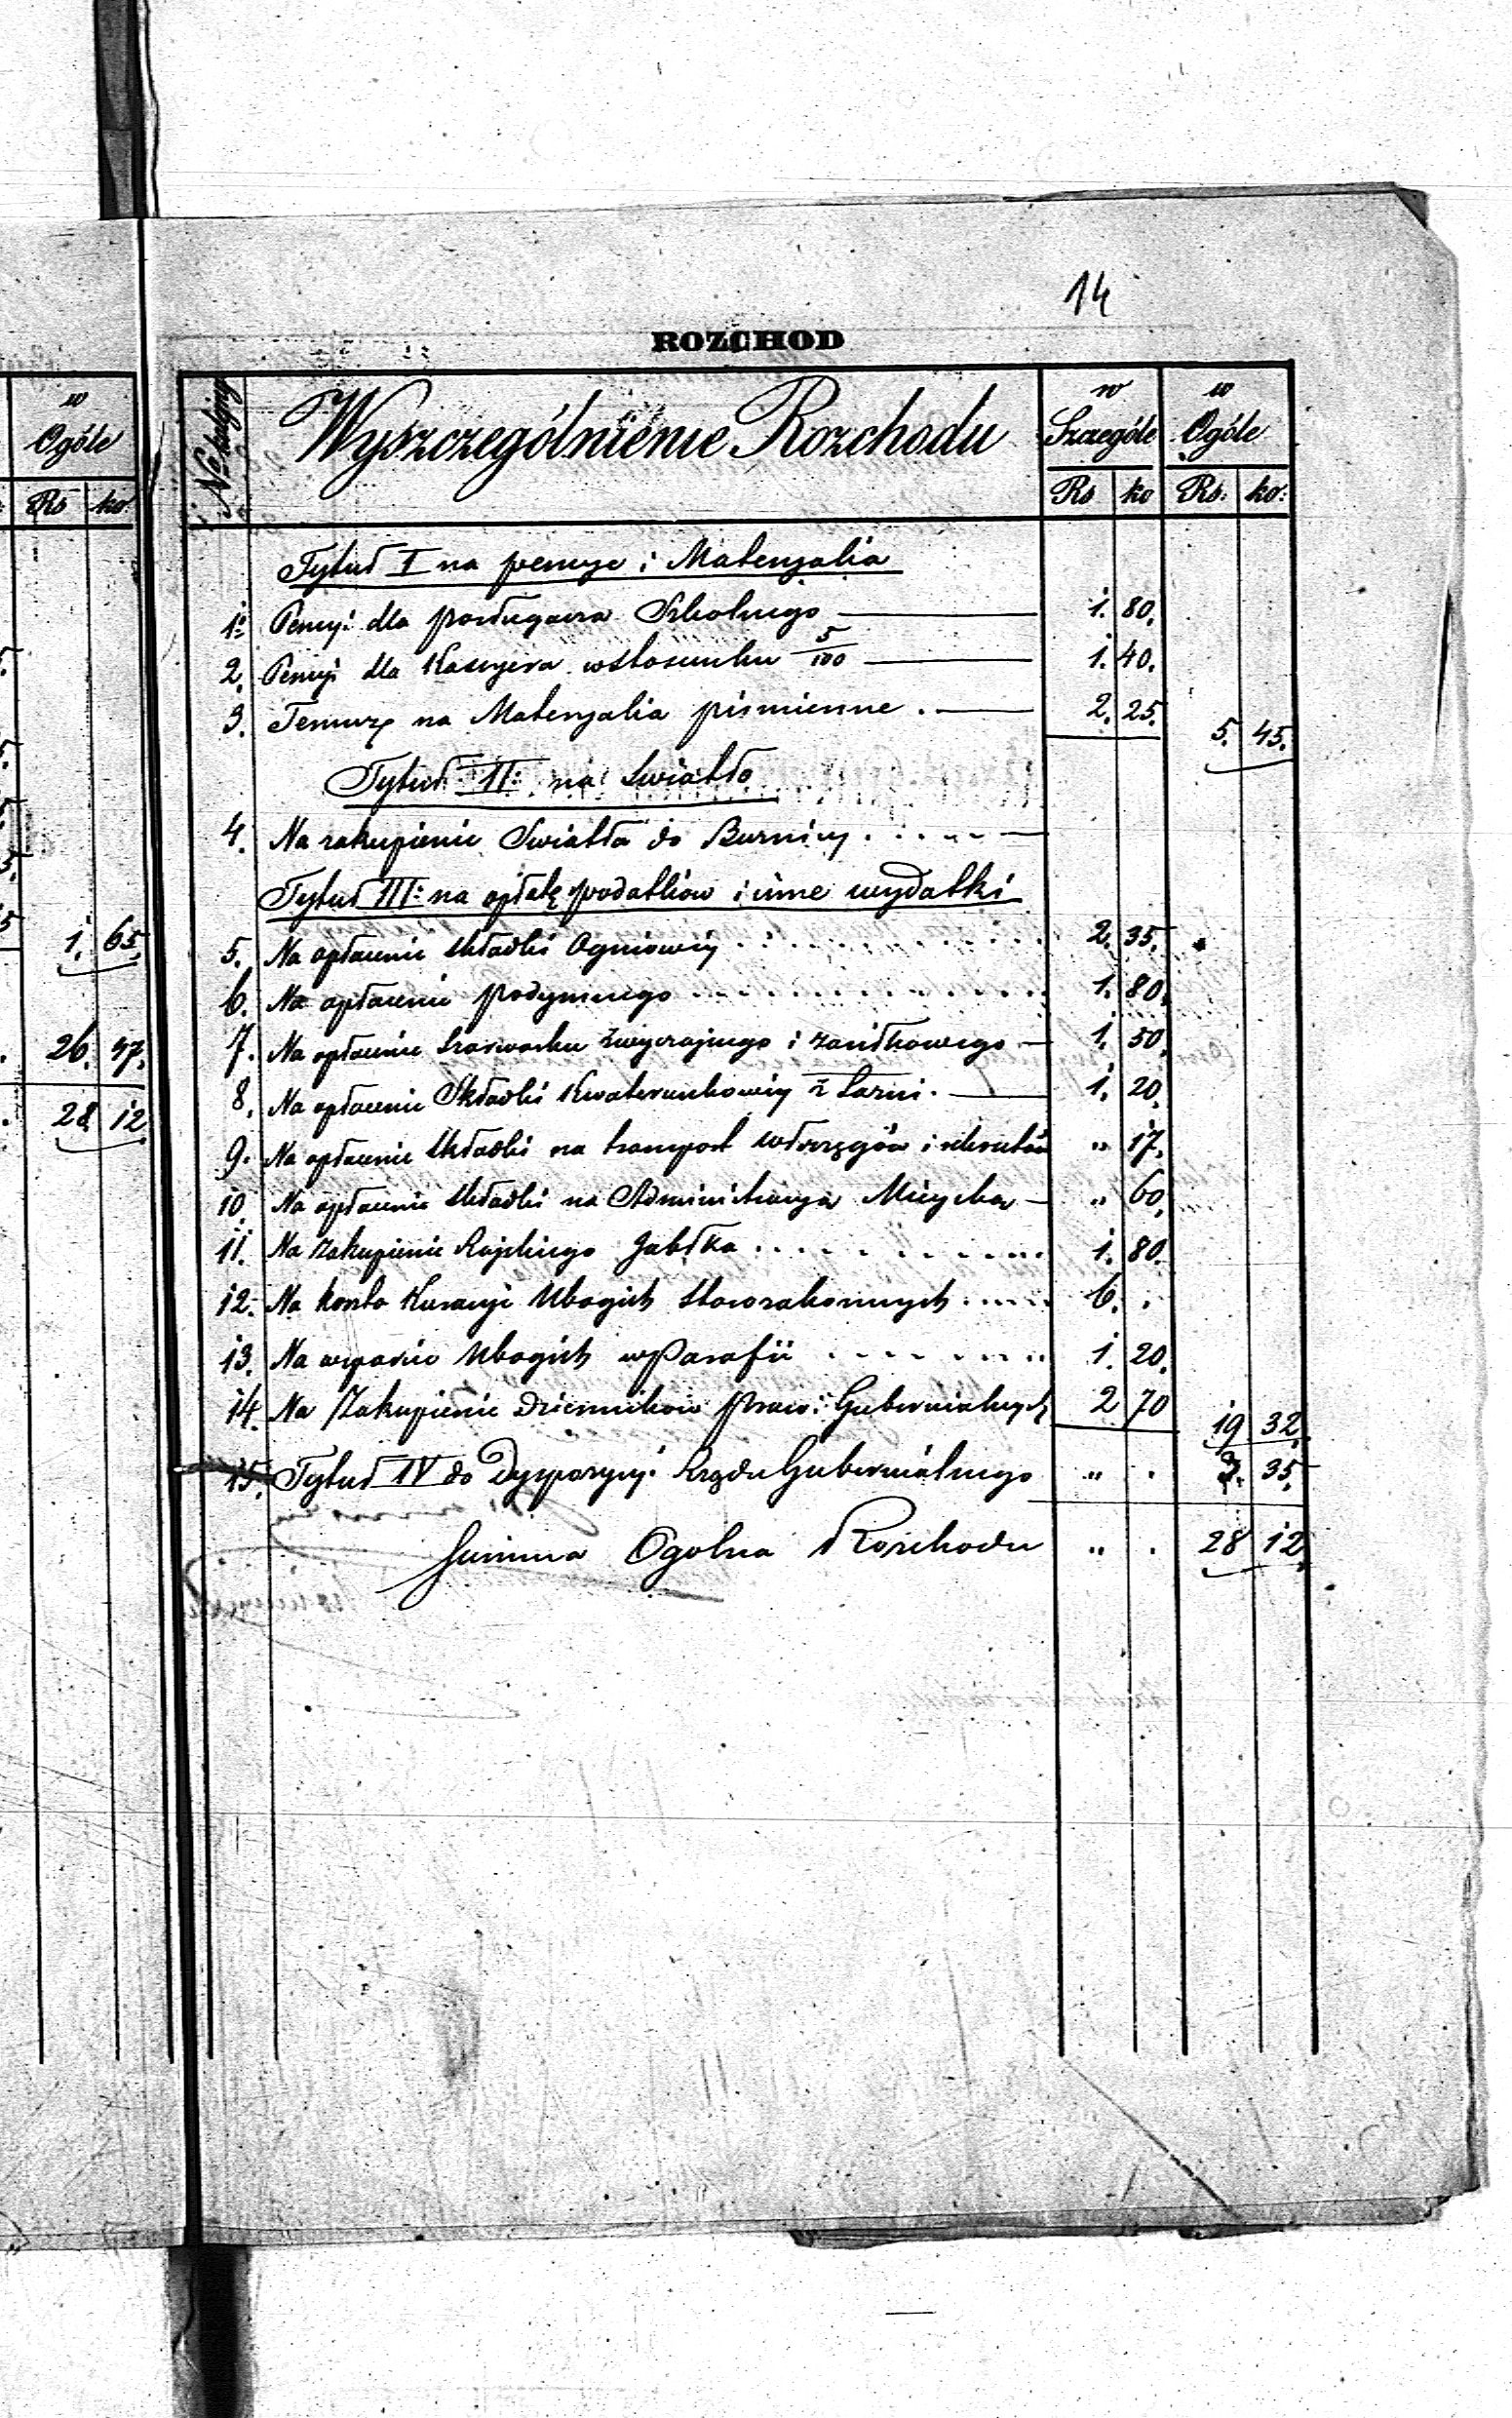 14
ROZCHOD
w Ogóle
Rs ko:
1. 65.
26. 47.
28 12
No bieżący Wyszczególnienie Rozchodu w Szczególe w Ogóle
Rs ko Rs: ko:
Tytuł I na pensye i Materyalia
1. Pensyi dla posługacza Szkolnego 1. 80.
2. Pensyi dla Kassyera wstosunku 5/100 1. 40.
3. Temuż na Materyalia piśmienne . 2. 25. 5. 45.
Tytuł II: na Swiatło
4. Na zakupienie Swiatła do Burnicy
Tytuł III: na opłatę podatków i inne wydatki
5. Na opłacenie składki Ogniowey 2. 35.
6. Na opłacenie podymnego 1. 80.
7. Na opłacenie szarwarku zwyczajnego i zasiłkowego 1. 50.
8. Na opłacenie Składki Kwaterunkowey z Łazni. 1. 20.
9. Na opłacenie składki na transport włoczęgów i rekrutów " 17.
10. Na opłacenie składki na Administracya Mieyska " 60.
11. Na Zakupienie Rajskiego Jabłka 1. 80.
12. Na koszta Kuracyi Ubogich Starozakonnych 6. .
13. Na wsparcie Ubogich wParafii 1. 20.
14. Na Zakupienie Dzienników praw i Gubernialnych 2 70 19 32.
15. Tytuł IV do Dyspozycyi Rządu Gubernialnego " . 3. 35.
Summa Ogolna Rozchodu " . 28 12.